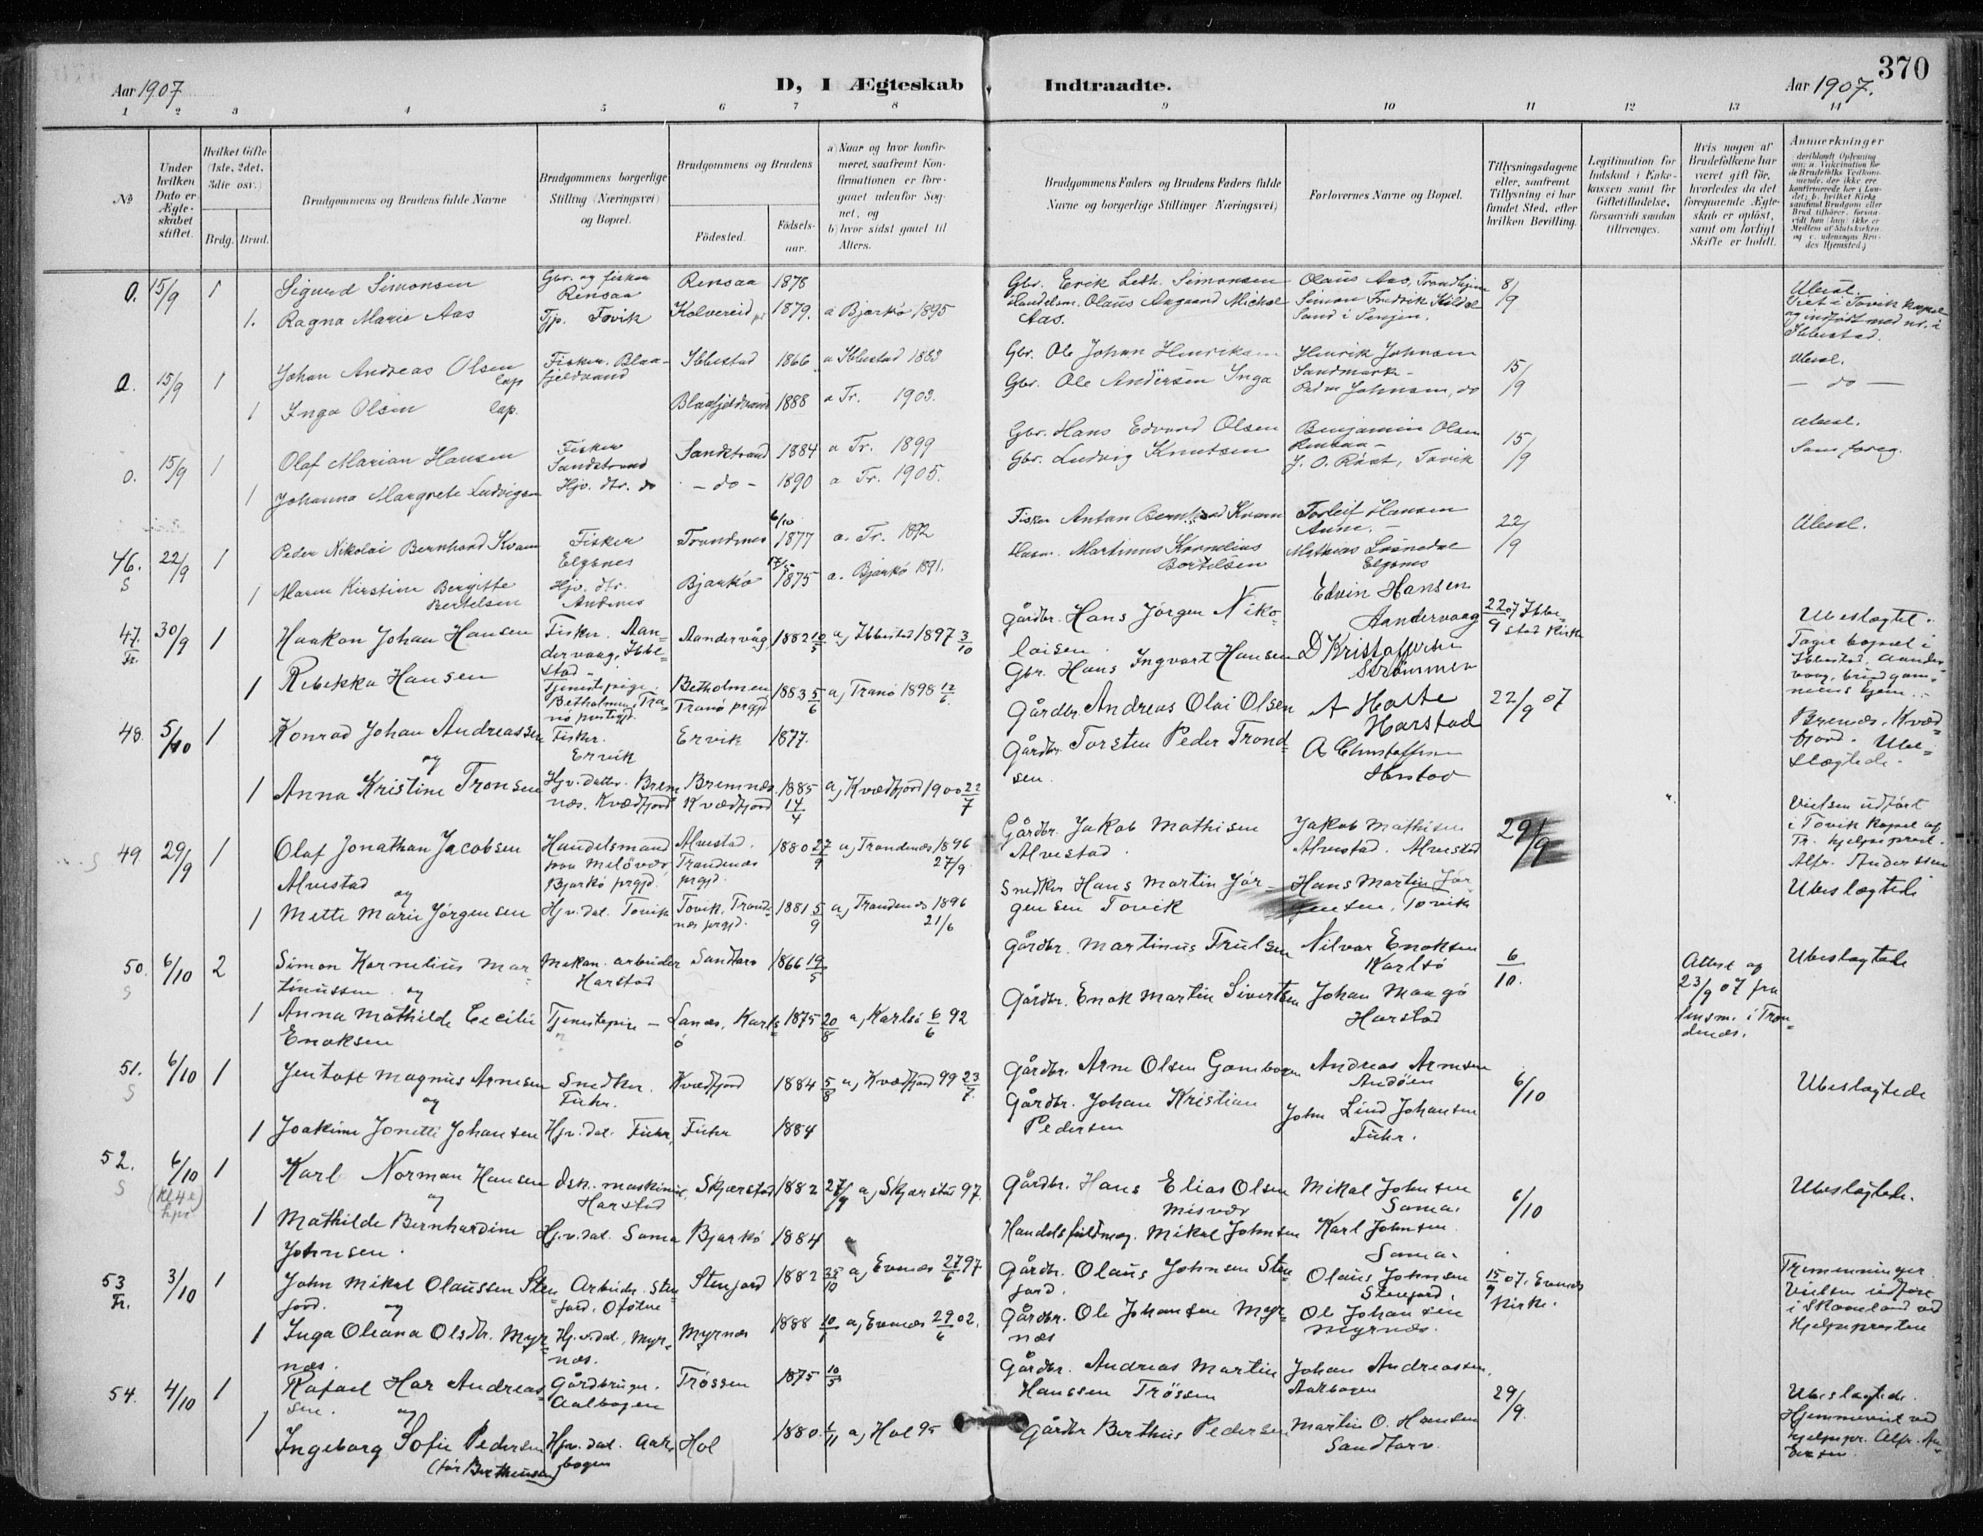 370
Aar 1907
D, I Ægteskab Indtraadte.
Aar 1907.
1 2 3 4 5 6 7 8 9 10 11 12 13 14
No
Under hvilken Dato er Ægteskabet stiftet.
Hvilket Gifte (1ste, 2det, 3die osv.)
Brdg. Brud.
Brudgommens og Brudens fulde Navne
Brudgommens borgerlige Stilling (Næringsvei) og Bopæl.
Brudgommens og Brudens
Fødested.
Fødselsaar.
a) Naar og hvor konfirmeret, saafremt Konfirmationen er foregaaet udenfor Sognet, og
b) hvor sidst gaaet til Alters.
Brudgommens Faders og Brudens Faders fulde Navne og borgerlige Stillinger (Næringsvei)
Forlovernes Navne og Bopæl.
Tillysningsdagene eller, saafremt Tillysning ei har fundet Sted, efter hvilken Bevilling.
Legitimation for Indskud i Enkekassen samt for Giftetilladelse, forsaavidt saadan tiltrænges.
Hvis nogen af Brudefolkene har været gift før, hvorledes da det foregaaende Ægteskab er opløst, samt om lovligt Skifte er holdt.
Anmærkninger
0. 15/9 1 Sigurd Simonsen Gbr. og fisker Rensaa Rensaa 1878 Gbr. Erik Simonsen Olaus Aas, Trondhjem 8/9 Ubesl.
1. Ragna Marie Aas Tjp. Tovik Kolvereid 1879. a Bjarkö 1895 Handelsm. Olaus Aagaard Michal Aas. Simon Fredrik Kildal Sand i Senjen. Viet i Tovik kapel og indført med nr. i Ibbestad.
0. 15/9 1 Johan Andreas Olsen lap Fisker. Blaafjeldvand Ibbestad 1866 a Ibbestad 1883 Gbr. Ole Johan Henriksen Henrik Johnsen Sandmark 15/9 Ubesl.
1 Inga Olsen lap. Blaafjeldvand 1888 a Tr. 1903. Gbr. Ole Andersen Inga Peder Johnsen, do — do —
0. 15/9 1 Olaf Marian Hansen Fisker Sandstrand Sandstrand 1884 a Tr. 1899 Gbr. Hans Edvard Olsen Benjamin Olsen Rensaa 15/9 Ubesl.
1 Johanna Margrete Ludvigsen Hjv. dtr. do — do — 1890 a Tr. 1905. Gbr. Ludvig Knutsen J. O. Röst, Tovik Som foreg.
46. S 22/9 1 Peder Nikolai Bernhard Kvam Fisker Elgsnes Trondenes 6/10 1877 a. Tr. 1892 Fisker Anton Bernhard Kvam Torleif Hansen Aune. 22/9 Ubesl.
1 Maren Kirstine Bergitte Bertelsen Hjv. dtr. Andenes Bjarkö 17/5 1875 a. Bjarkö 1891. Martinus Kornelius Bertelsen Mathias Elgsnes
47. Fr. 30/9 1 Haakon Johan Hansen Fisker. Aandervaag, Ibbestad Aandervåg 1882 10/5 a) Ibbestad 1897 3/10 Gårdbr. Hans Jörgen Nikolaisen Edvin Hansen Aandervaag 22/9 07 Ibbestad Kirke Ubeslægtet.
1 Rebekka Hansen Tjenestepige. Betholmen, Tranö prestegjd. Betholmen Tranö prgjd 1883 5/6 a) Tranö 1898 12/6. Gbr. Hans Ingvart Hansen D Kristoffersen Strømmen Taget bopæl i Ibbestad. Aandervaag, brudgommens hjem.
48. 5/10 1 Konrad Johan Andreassen og Fisker. Ervik Ervik 1877. Gårdbr. Andreas Olai Olsen A Holte Harstad 22/9 07 Bremnes, Kvædfjord. Ubeslægtede.
1 Anna Kristine Tronsen Hjv. datter. Bremnæs. Kvædfjord Bremnæs. Kvædfjord 1885 14/4 a) Kvædfjord 1900 22/7 Gårdbr. Torsten Peder Trondsen. A Christoffersen Harstad
49. S 29/9 1 Olaf Jonathan Jacobsen Alvestad og Handelsmand paa Melövær Bjarkö prgjd. Alvestad. Trondenæs prgjd. 1880 27/9 a) Trondenæs 1896 27/9. Gårdbr. Jakob Mathisen Alvestad. Jakob Mathisen Alvestad. Alvestad 29/9 Vielsen udført i Tovik Kapel af Tr. hjelpeprest. Alfr. Andersen
1 Mette Marie Jörgensen Hjv. dat. Tovik Tovik, Trondnæs prgjd. 1881 5/9 a) Trondenæs 1896 21/6 Snedker Hans Martin Jörgensen Tovik Hans Martin Jörgensen, Tovik Ubeslægtede
50. S 6/10 2 Simon Kornelius Martinussen og Mekan. arbeider Harstad Sandtorv 1866 19/5 Gårdbr. Martinus Trulsen Nilvar Enoksen Karlsö 6/10. Attest af 23/9 07 fra lensm. i Trondenæs. Ubeslægtede
1 Anna Mathilde Cecilie Enoksen Tjenestepige — Lanæs, Karlsö 1875 20/8 a) Karlsö 6/6 92 Gårdbr. Enok Martin Sivertsen Johan Maagö Harstad
51. S 6/10 1 Jentoft Magnus Arnesen og Snedker. Fuhr. Kvædfjord 1884 5/8 a) Kvædfjord 99 23/7. Gårdbr. Arne Olsen Andreas Arnesen Andöen 6/10 Ubeslægtede
1 Joakime Jonette Johansen Hjv. dat. Fuhr, Fuhr 1884 Gårdbr. Johan Kristian Pedersen John Lind Johansen Fuhr.
52. S 6/10 (kl 4 e) 1 Karl Norman Hansen og Dsk. maskinist Harstad Skjærstad 1882 27/9 a) Skjærstad 97. Gårdbr. Hans Elias Olsen Misvær Mikal Johnsen Sama. 6/10 Ubeslægtede.
1 Mathilde Bernhardine Johnsen. Hjv. dat. Sama Bjarkö 1884 Handelsfuldmæg. Mikal Johnsen Karl Johnsen Sama.
53 Fr. 3/10 1 John Mikal Olaussen Stenjord. og Arbeider Stenjord, Ofoten Stenjord 1882 a) Evenæs 27/6 97 Gårdbr. Olaus Johnsen Stenjord. Olaus Johnsen Stenjord. 15/9 07. Evenæs Kirke. Tremenninger. Vielsen udført i Skaaneland ved Hjelpepresten
1 Inga Oliana Olsdtr. Myrnæs. Hjv. dat. Myrnæs. Myrnæs 1888 10/1 a) Evenæs 29/6 02. Gårdbr. Ole Johansen Myrnæs Ole Johansen Myrnæs.
54. 4/10 1 Rafael Har Andreassen. og Gårdbruger. Aalbogen Trössen 1875 10/5 Gårdbr. Andreas Martin Hanssen Trössen Johan Andreassen. Aarbogen 29/9. Ubeslægtede.
1 Ingeborg Sofie Pedersen (før Bertheussen) Hjv. dat. Aarbogen Hol 1880. 6/11 a) Hol 95 Gårdbr Berthus Pedersen Martin O. Hansen Sandtorv. Hjemmeviet ved hjelpepr. Alfr. Andersen.